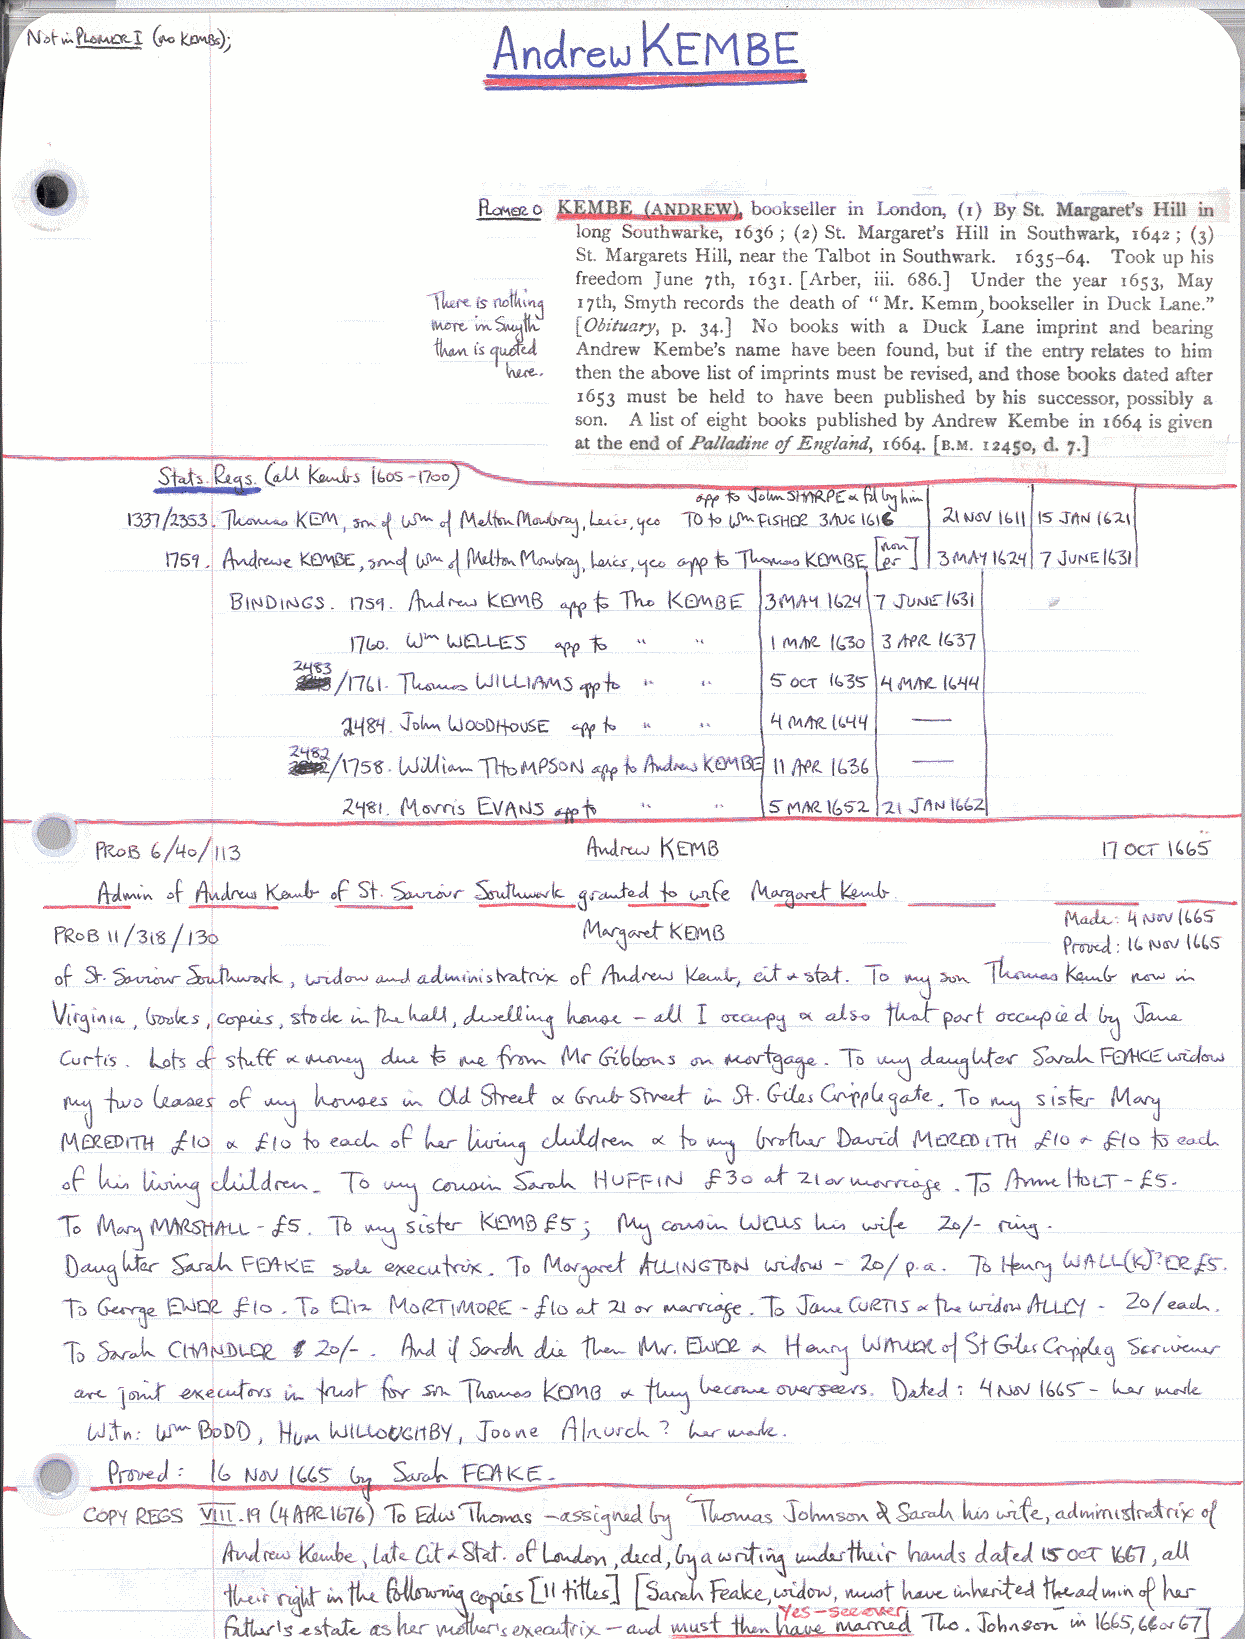 Not in PLOMER I (no KEMBS);
Andrew KEMBE
PLOMER O KEMBE (ANDREW), bookseller in London, (1) By St. Margaret's Hill in
long Southwarke, 1636; (2) St. Margaret's Hill in Southwark, 1642; (3)
St. Margarets Hill, near the Talbot in Southwark. 1635-64. Took up his
freedom June 7th, 1631. [Arber, iii. 686.] Under the year 1653, May
17th, Smyth records the death of "Mr. Kemm, bookseller in Duck Lane."
[Obituary, p. 34.] No books with a Duck Lane imprint and bearing
Andrew Kembe's name have been found, but if the entry relates to him
then the above list of imprints must be revised, and those books dated after
1653 must be held to have been published by his successor, possibly a
son. A list of eight books published by Andrew Kembe in 1664 is given
at the end of Palladine of England, 1664. [B.M. 12450, d. 7.]
There is nothing
more in Smyth
than is quoted
here.
Stats. Regs. (all Kembs 1605-1700)
app to John SHARPE & fd by him
1337/2353. Thomas KEM, son of Wm of Melton Mowbray, Leics, yeo TO to Wm FISHER 3 AUG 1616 21 NOV 1611 15 JAN 1621
1759. Andrewe KEMBE, son of Wm of Melton Mowbray, Leics, yeo app to Thomas KEMBE [non pr] 3 MAY 1624 7 JUNE 1631
BINDINGS. 1759. Andrew KEMB app to Tho KEMBE 3 MAY 1624 7 JUNE 1631
1760. Wm WELLES app to " " 1 MAR 1630 3 APR 1637
2483/1761. Thomas WILLIAMS app to " " 5 OCT 1635 4 MAR 1644
2484. John WOODHOUSE app to " " 4 MAR 1644 —
2482/1758. William THOMPSON app to Andrew KEMBE 11 APR 1636 —
2481. Morris EVANS app to " " 5 MAR 1652 21 JAN 1662
PROB 6/40/113 Andrew KEMB 17 OCT 1665
Admin of Andrew Kemb of St. Saviour Southwark granted to wife Margaret Kemb.
Made: 4 NOV 1665
PROB 11/318/130 Margaret KEMB Proved: 16 NOV 1665
of St. Saviour Southwark, widow and administratrix of Andrew Kemb, cit & stat. To my son Thomas Kemb now in
Virginia, books, copies, stock in the hall, dwelling house - all I occupy & also that part occupied by Jane
Curtis. Lots of stuff & money due to me from Mr Gibbons on mortgage. To my daughter Sarah FEAKE widow
my two leases of my houses in Old Street & Grub Street in St. Giles Cripplegate. To my sister Mary
MEREDITH £10 & £10 to each of her living children & to my brother David MEREDITH £10 & £10 to each
of his living children. To my cousin Sarah HUFFIN £30 at 21 or marriage. To Anne HOLT - £5.
To Mary MARSHALL - £5. To my sister KEMB £5; My cousin WELLS his wife 20/- ring.
Daughter Sarah FEAKE sole executrix. To Margaret ALLINGTON widow - 20/ p.a. To Henry WALL(K)?ER £5.
To George EWER £10. To Eliz MORTIMORE - £10 at 21 or marriage. To Jane CURTIS & the widow ALLEY - 20/ each.
To Sarah CHANDLER 20/-. And if Sarah die then Mr. EWER & Henry WALKER of St Giles Crippleg Scrivener
are joint executors in trust for son Thomas KEMB & they become overseers. Dated: 4 NOV 1665 - her mark
Witn: Wm BODD, Hum WILLOUGHBY, Joone Alchurch? her mark.
Proved: 16 NOV 1665 by Sarah FEAKE.
COPY REGS VIII.19 (4 APR 1676) To Edw Thomas - assigned by "Thomas Johnson & Sarah his wife, administratrix of
Andrew Kembe, late Cit & Stat. of London, decd, by a writing under their hands dated 15 OCT 1667, all
their right in the following copies [11 titles] [Sarah Feake, widow, must have inherited the admin of her
Yes - see over
father's estate as her mother's executrix - and must then have married Tho. Johnson in 1665, 66 or 67]